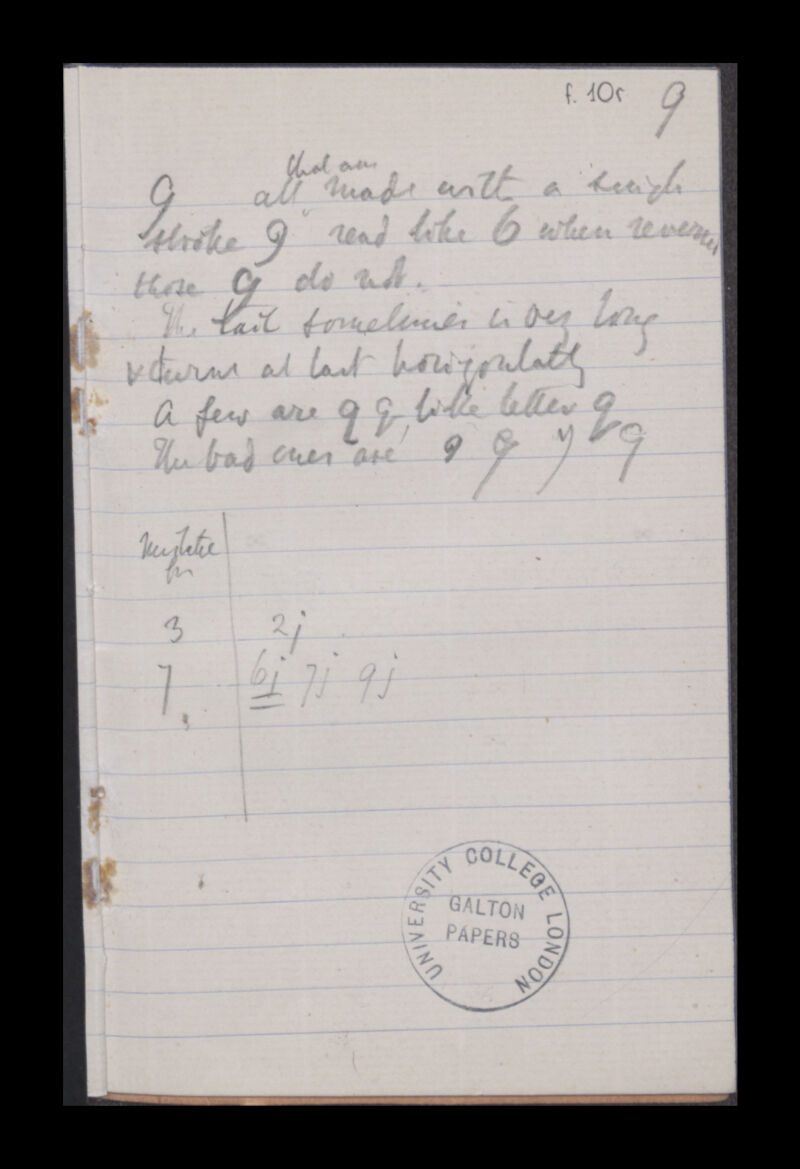 f. 10r 9
that are
9 all made with a single
stroke 9 read like 6 when reversed
those 9 do not.
The tail sometimes is very long
& turns at last horizontally
A few are 9 9, like letter q
The bad ones are 9 9 y 9
Mistake
for
3 2j
7, 6j 7j 9j
UNIVERSITY COLLEGE LONDON
GALTON
PAPERS